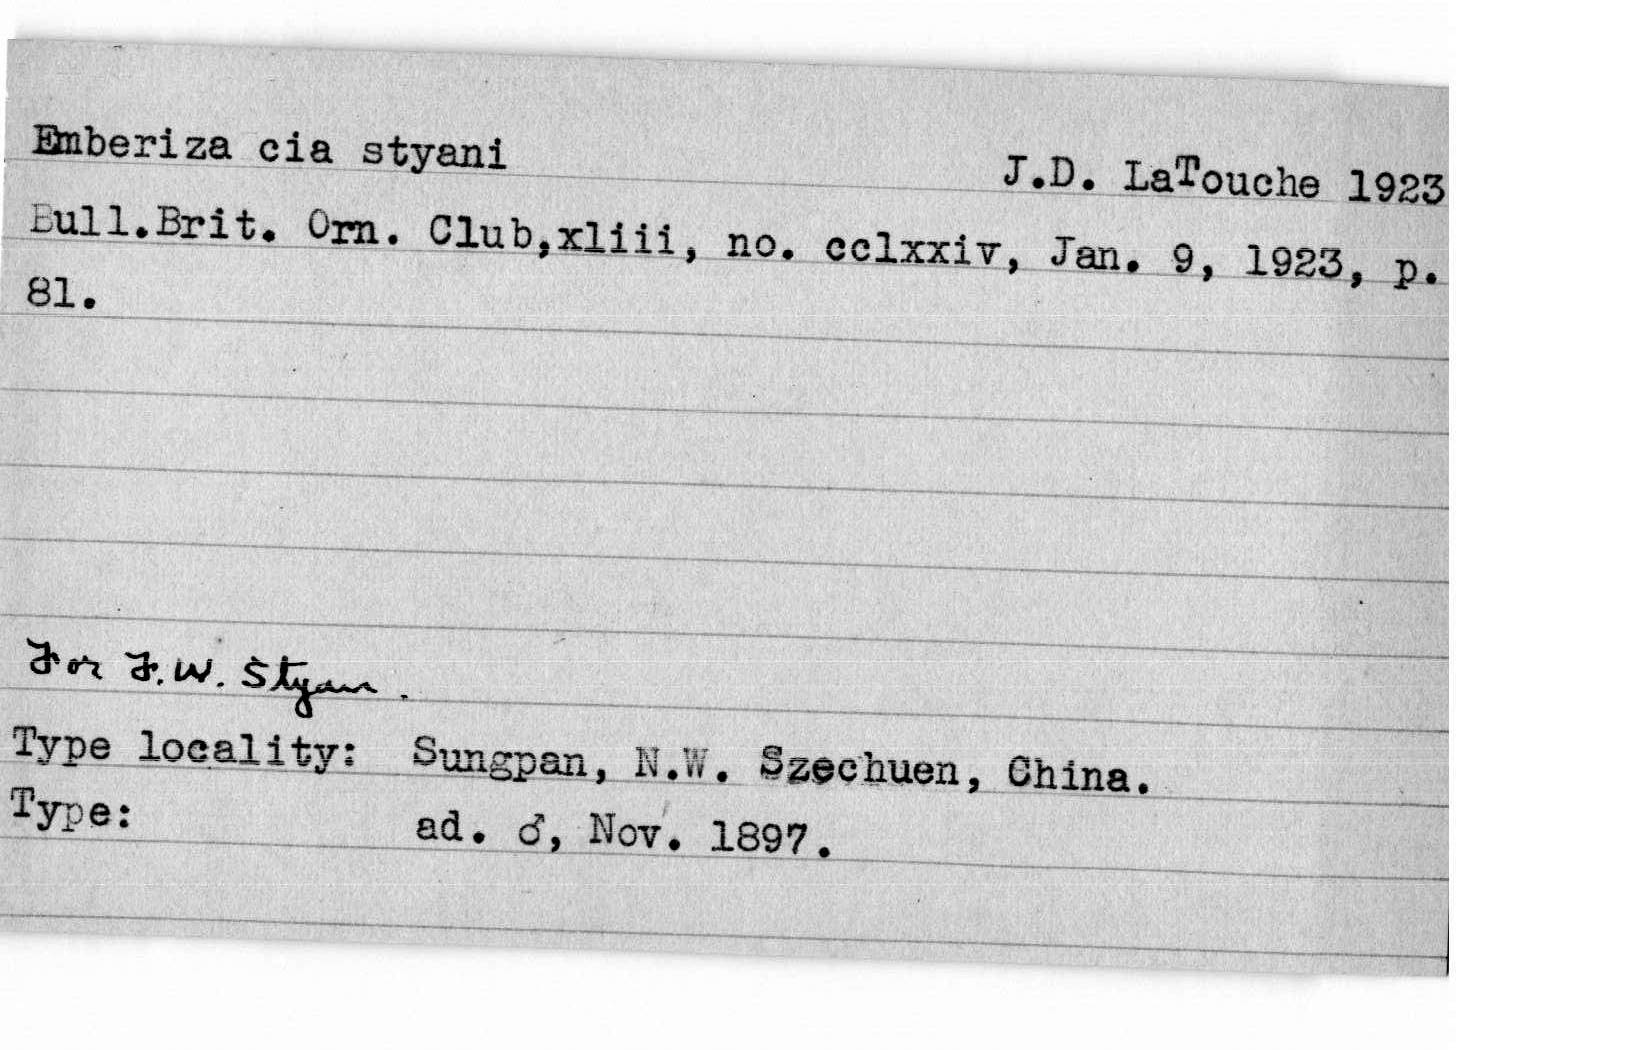 Emberiza cia styani J.D. LaTouche 1923
Bull.Brit. Orn. Club,xliii, no. cclxxiv, Jan. 9, 1923, p.
81.
For F.W. Styan.
Type locality: Sungpan, N.W. Szechuen, China.
Type: ad. ♂, Nov. 1897.